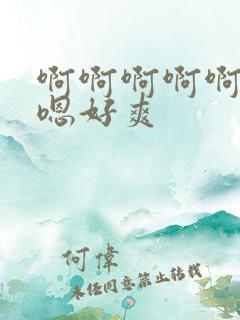 啊啊啊啊啊
嗯好爽
何偉
未经同意禁止转载